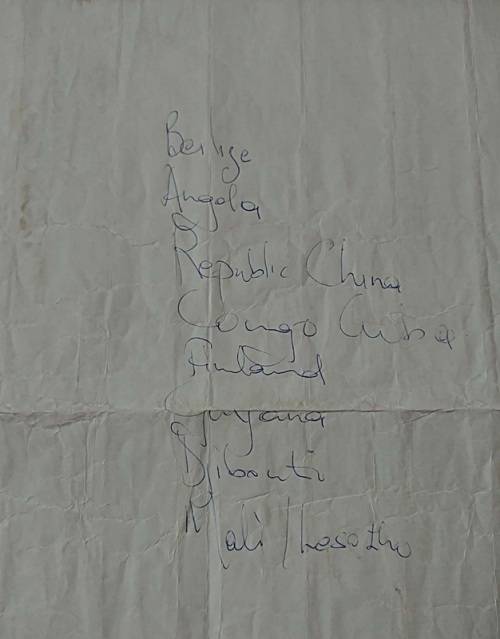 Berlize
Angola
Republic China
Congo Cuba
Finland
Guyana
Djibouti
Mali / Lesotho